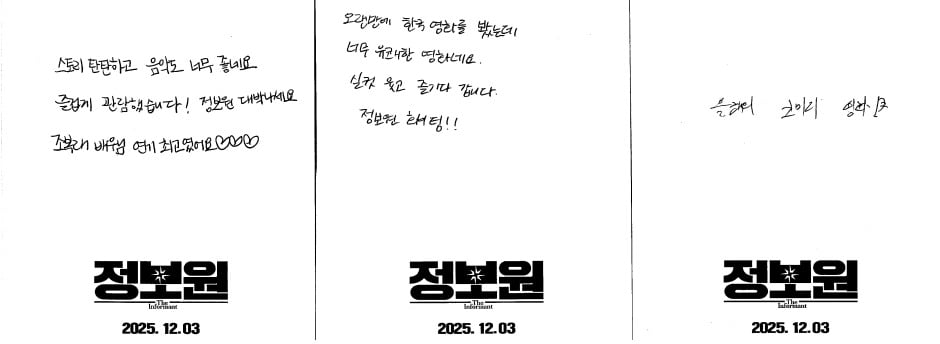 스토리 탄탄하고 음악도 너무 좋네요
즐겁게 관람했습니다! 정보원 대박나세요
조복래 배우님 연기 최고였어요♡♡♡
정보원
The
Informant
2025. 12.03
오랜만에 한국 영화를 봤는데
너무 유쾌한 영화네요.
실컷 웃고 즐기다 갑니다.
정보원 화이팅!!
정보원
The
Informant
2025. 12.03
올해의 코미디
정보원
The
Informant
2025. 12.03